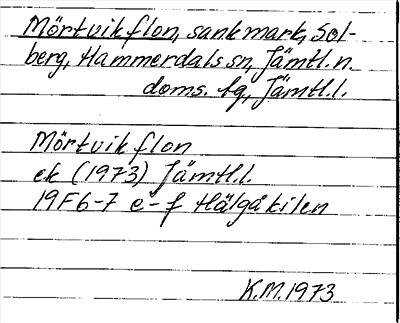 Mörtvikflon, sankmark, Sol-
berg, Hammerdals sn, Jämtl. n.
doms. tg, Jämtl. l.
Mörtvikflon
ek (1973) Jämtl. l.
19F6-7 e-f Hälgåkilen
K.M. 1973